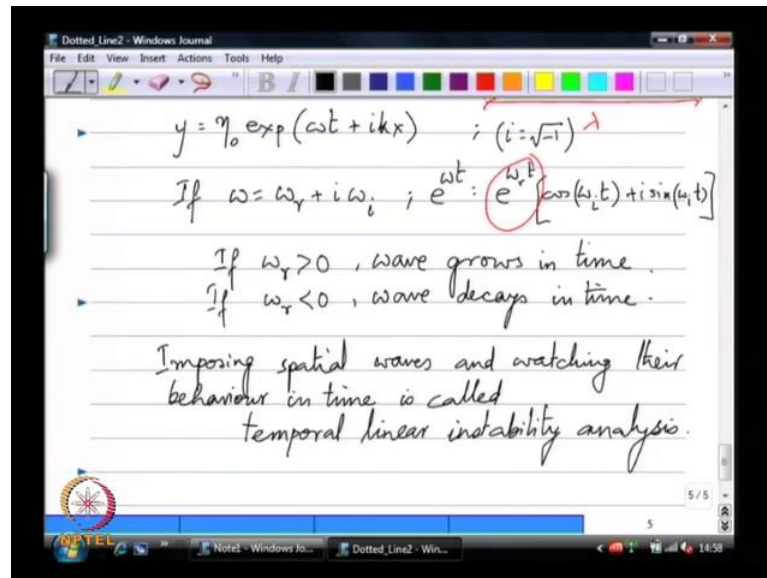 Dotted_Line2 - Windows Journal
File Edit View Insert Actions Tools Help
B I
y = η₀ exp(ωt + ikx) ; (i = √-1) λ
If ω = ω_r + i ω_i ; e^{ωt} = e^{ω_r t} [cos(ω_i t) + i sin(ω_i t)]
If ω_r > 0 , wave grows in time.
If ω_r < 0 , wave decays in time.
Imposing spatial waves and watching their
behaviour in time is called
temporal linear instability analysis.
5/5
5
NPTEL
Note1 - Windows Jo... Dotted_Line2 - Win... 14:58